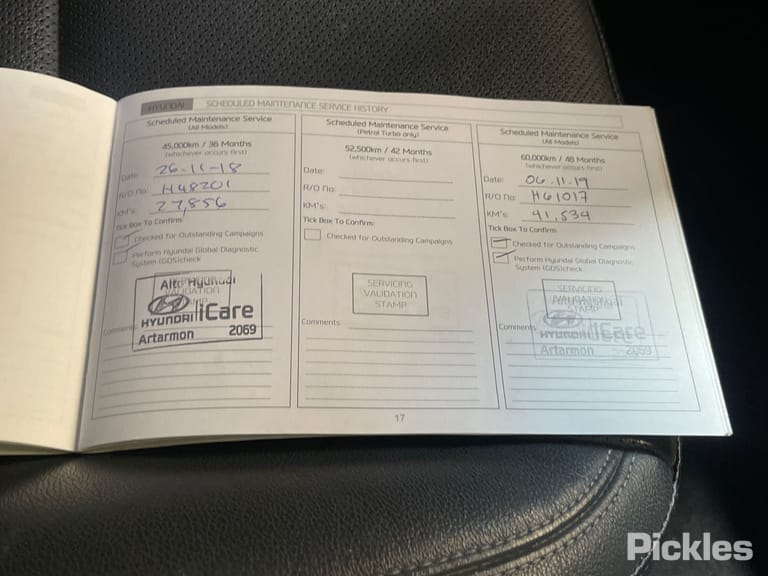 HYUNDAI SCHEDULED MAINTENANCE SERVICE HISTORY
Scheduled Maintenance Service
(All Models)
45,000km / 36 Months
(whichever occurs first)
Date: 26-11-18
R/O No: H48201
KM's: 27,856
Tick Box To Confirm:
Checked for Outstanding Campaigns
Perform Hyundai Global Diagnostic
System (GDS)check
Alto Hyundai
HYUNDAI iCare
Artarmon 2069
Comments:
Scheduled Maintenance Service
(Petrol Turbo only)
52,500km / 42 Months
(whichever occurs first)
Date:
R/O No:
KM's:
Tick Box To Confirm:
Checked for Outstanding Campaigns
SERVICING
VALIDATION
STAMP
Comments:
Scheduled Maintenance Service
(All Models)
60,000km / 48 Months
(whichever occurs first)
Date: 06.11.19
R/O No: H61017
KM's: 41,534
Tick Box To Confirm:
Checked for Outstanding Campaigns
Perform Hyundai Global Diagnostic
System (GDS)check
SERVICING
VALIDATION
STAMP
HYUNDAI iCare
Artarmon 2069
Comments:
17
Pickles